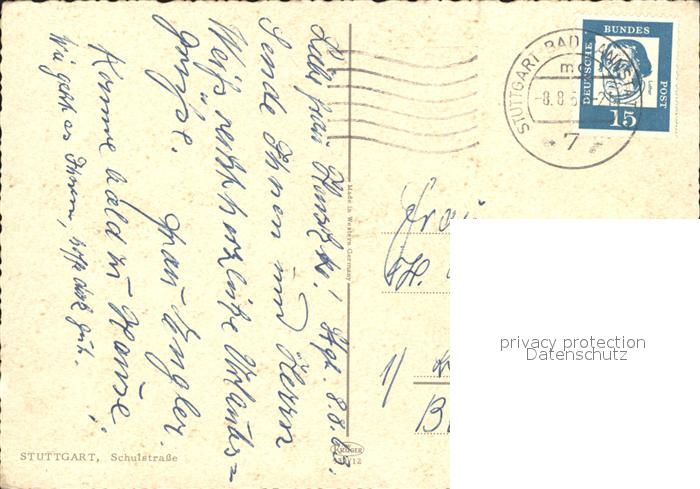 Stgt. 8.8.63.
Liebe Frau
Sende Ihnen und Herrn
Weiß recht herzliche Urlaubs=
grüße.
Frau Engler.
Komme bald zu Hause!
Wie geht es Ihnen, hoffe doch gut.
Made in Western Germany
STUTTGART, Schulstraße
KRÜGER
STUTTGART-BAD CANNSTATT
-8.8.6
7
DEUTSCHE
BUNDES
POST
Luther
15
Frau
1/
privacy protection
Datenschutz